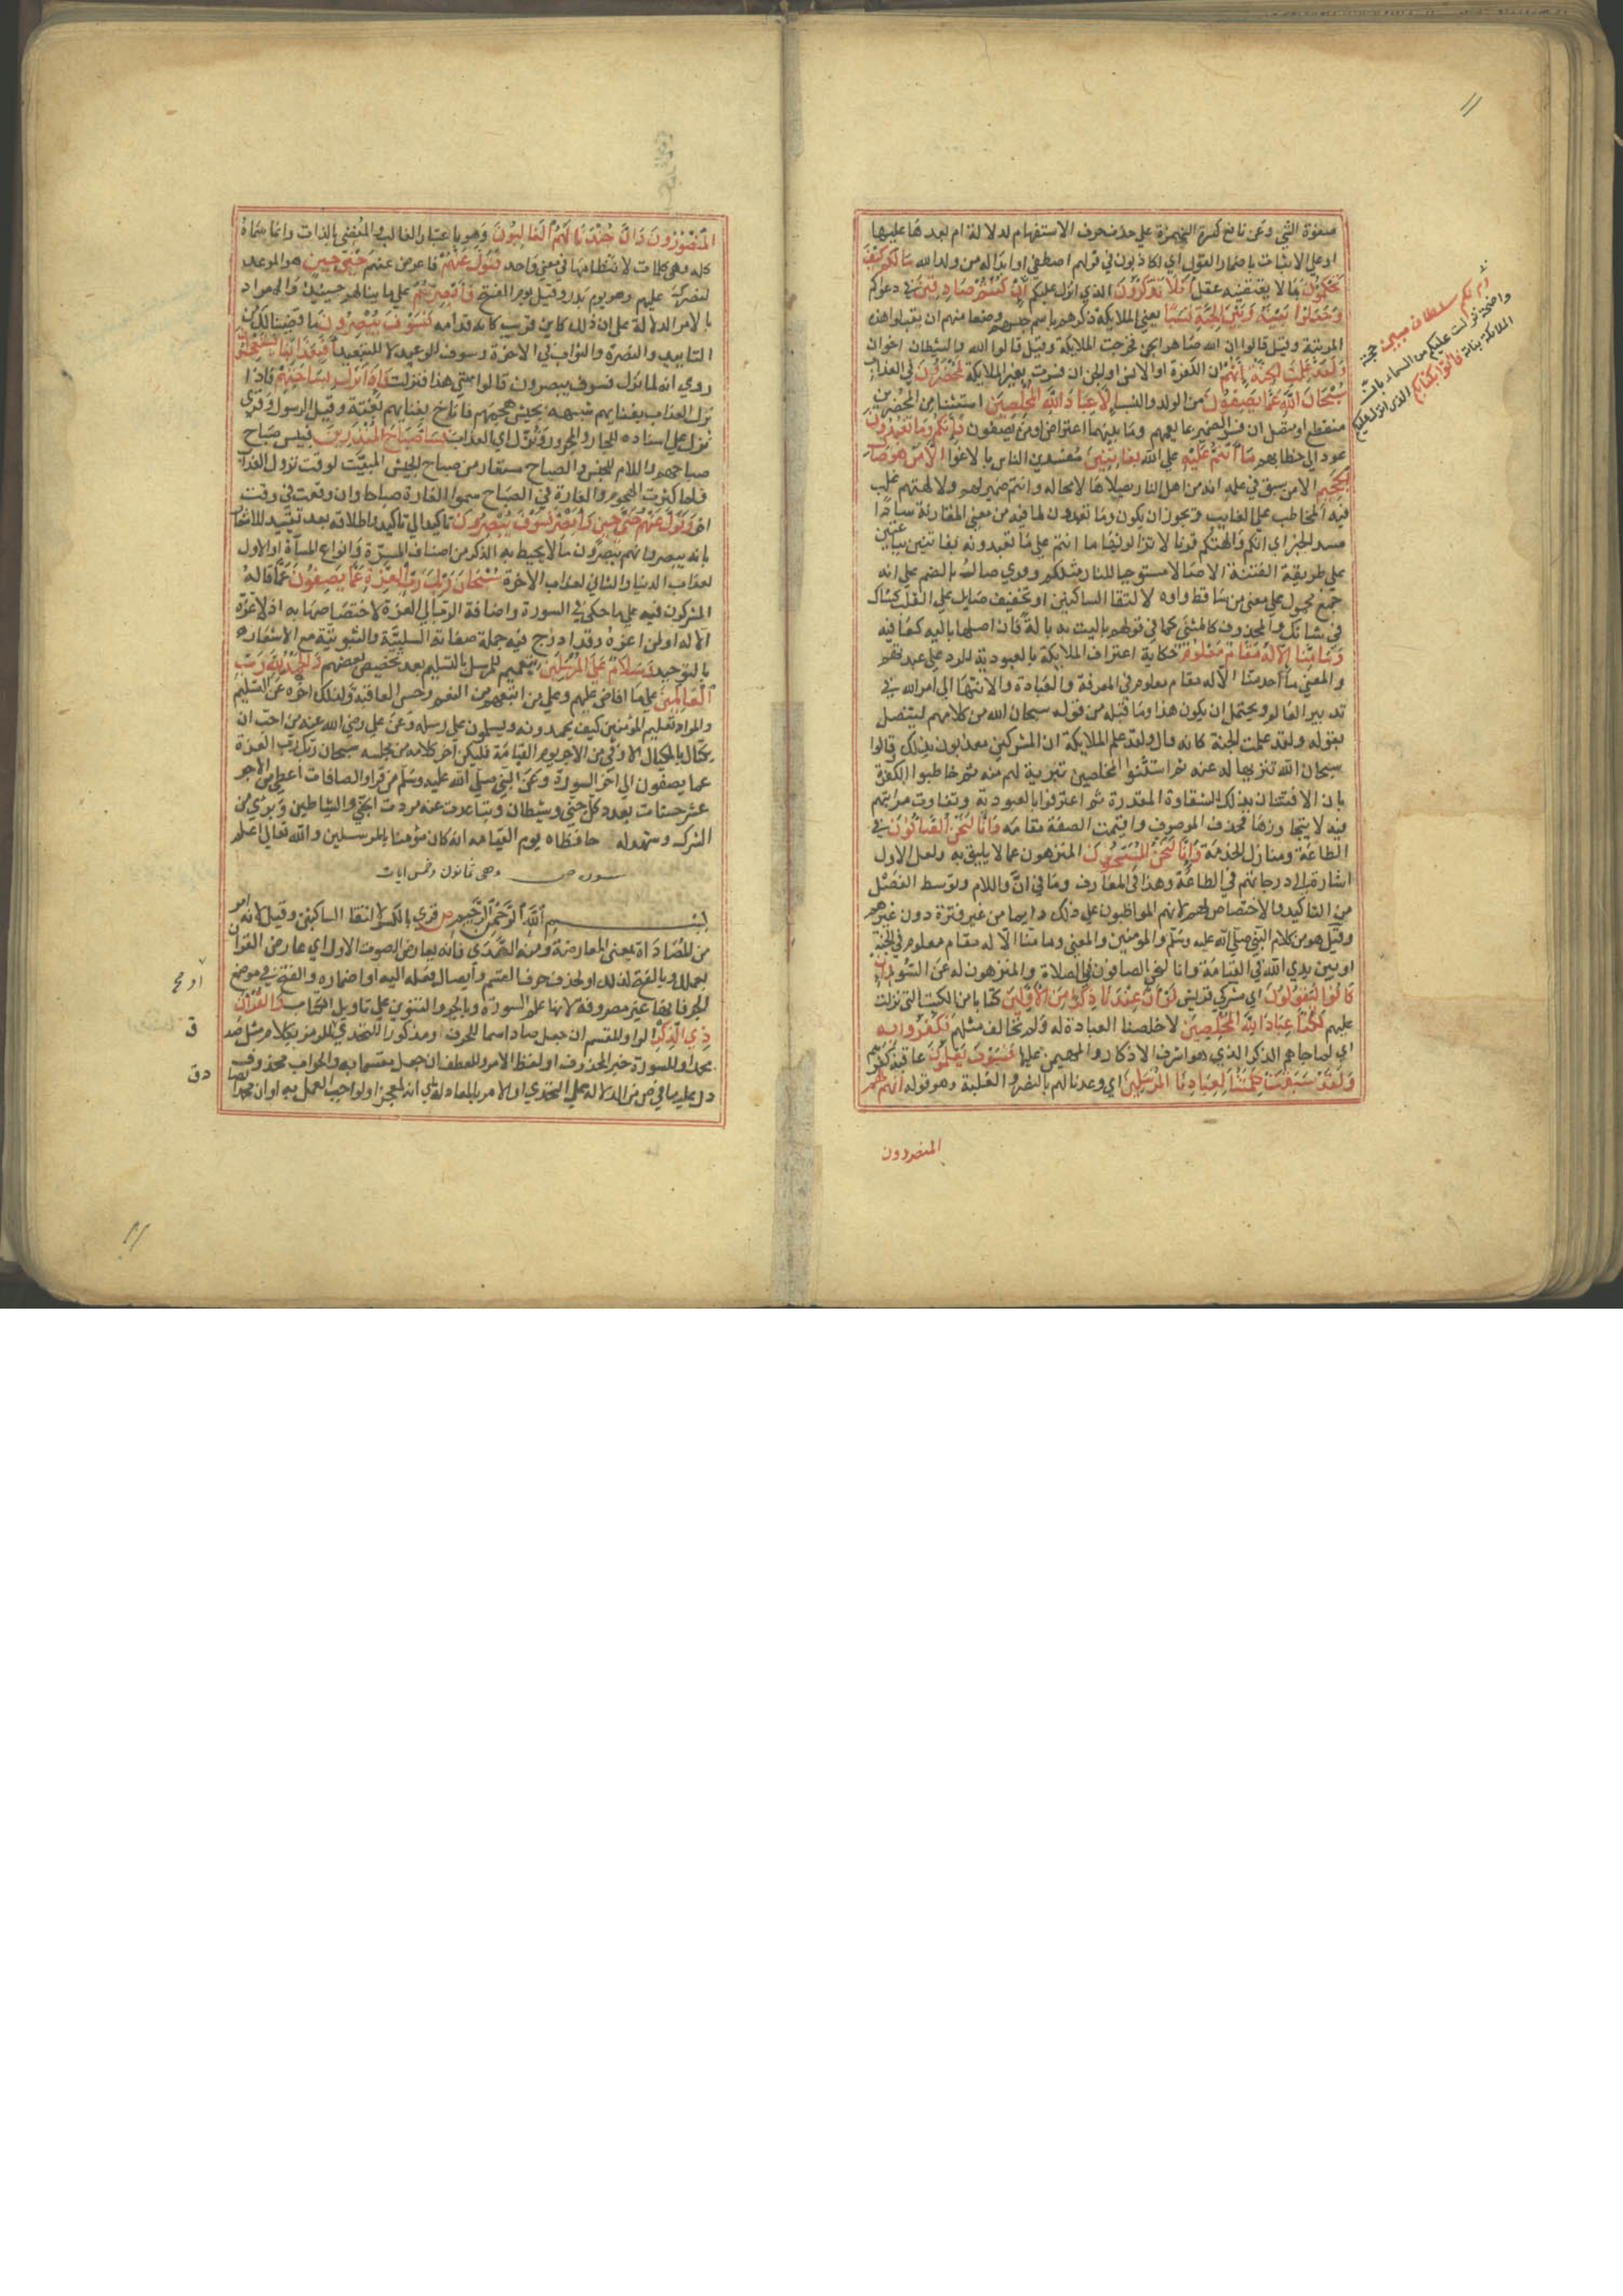 صفوة الشي وعن نافع كسرة الهمزة علي حذف حرف الاستفهام لدلالة ام بعدها عليها
او علي الاثبات باضمار القول اي لكاذبون في قولهم اصطفي او ابداله من ولد الله مالكم كيف
تحكمون بما لا يقتضيه عقل افلا تذكرون ان كنتم صادقين في دعواكم
وجعلوا بينه وبين الجنة نسبا يعني الملايكة ذكرهم باسم جنسهم وضعا منهم ان يبلغوا هذه
المرتبة وقيل قالوا ان الله صاهر الجن فخرجت الملايكة وقيل قالوا الله والشيطان اخوان
ولقد علمت الجنة انهم ان الكفرة او الانس او الجن ان فسرت بغير الملايكة لمحضرون في العذاب
سبحان الله عما يصفون من الولد والنسب الا عباد الله المخلصين استثنا من المحضرين
منقطع او متصل ان فسر الضمير بما يعمهم وما بينهما اعتراض او من يصفون فانكم وما تعبدون
عود الي خطابهم ما انتم عليه علي الله بفاتنين مفسدين الناس بالاغوا الا من هو صال
الجحيم الا من سبق في علمه انه من اهل النار يصلاها لا محالة وانتم ضمير لهم ولالهتهم غلب
فيه المخاطب علي الغايب ويجوز ان يكون وما تعبدون لما فيه من معني المقارنة سادا
مسد الخبر اي انكم والهتكم قرنا لا تزالون تعبدونها ما انتم علي ما تعبدونه بفاتنين بباعثين
علي طريقة الفتنة الا ضالا مستوجبا للنار مثلكم وقري صال بالضم علي انه
جمع محمول علي معني من ساقط واوه لالتقا الساكنين او تخفيف صايل علي القلب كشاك
في شائك والمحذوف كالمنسي كما في قولهم ما باليت به بالة فان اصلها بالية كعافية
وما منا الا له مقام معلوم حكاية اعتراف الملايكة بالعبودية للرد علي عبدتهم
والمعني ما احد منا الا له مقام معلوم في المعرفة والعبادة والانتها الي امر الله في
تدبير العالم ويحتمل ان يكون هذا وما قبله من قوله سبحان الله من كلامهم ليتصل
بقوله ولقد علمت الجنة كانه قال ولقد علم الملايكة ان المشركين معذبون بذلك وقالوا
سبحان الله تنزيها له عنه ثم استثنوا المخلصين تبرية لهم منه ثم خاطبوا الكفرة
بان الافتتان بذلك للشقاوة المقدرة ثم اعترفوا بالعبودية وتفاوت مراتبهم
فيه لا يتجاوزها فحذف الموصوف واقيمت الصفة مقامه وانا لنحن الصافون في
الطاعة ومنازل الخدمة وانا لنحن المسبحون المنزهون عما لا يليق به ولعل الاول
اشارة الي درجاتهم في الطاعة وهذا في المعارف وما في ان واللام وتوسط الفصل
من التاكيد والاختصاص لانهم المواظبون علي ذلك دايما من غير فترة دون غيرهم
وقيل هو من كلام النبي صلي الله عليه وسلم والمومنين والمعني وما منا الا له مقام معلوم في الجنة
او بين يدي الله في القيامة وانا لنحن الصافون في الصلاة والمنزهون له عن السوء وان
كانوا ليقولون اي مشركي قريش لو ان عندنا ذكرا من الاولين كتابا من الكتب التي نزلت
عليهم لكنا عباد الله المخلصين لاخلصنا العبادة له ولم نخالف مثلهم فكفروا به
اي لما جاهم الذكر الذي هو اشرف الاذكار والمهيمن عليها فسوف يعلمون عاقبة كفرهم
ولقد سبقت كلمتنا لعبادنا المرسلين اي وعدنا لهم بالنصر والغلبة وهو قوله انهم لهم
المنصورون
ام لكم سلطان مبين حجة
واضحة نزلت عليكم من السماء بان
الملائكة بناته فاتوا بكتابكم الذي انزل عليكم
المنصورون وان جندنا لهم الغالبون وهو باعتبار الغالب والمقضي بالذات وانما سماه
كلمة وهي كلمات لانتظامها في معني واحد فتول عنهم فاعرض عنهم حتي حين هو الموعد
لنصرك عليهم وهو يوم بدر وقيل يوم الفتح وابصرهم علي ما ينالهم حينئذ والمراد
بالامر الدلالة علي ان ذلك كاين قريب كانه قدامه فسوف يبصرون ما قضينا لك من
التاييد والنصرة والثواب في الاخرة وسوف للوعيد لا للتبعيد افبعذابنا يستعجلون
روي انه لما نزل فسوف يبصرون قالوا متي هذا فنزلت فاذا نزل بساحتهم فاذا
نزل العذاب بفنايهم شبهه بجيش هجمهم فاناخ بفنايهم بغتة وقيل الرسول وقري
نزل علي اسناده الجار والمجرور ونزل اي العذاب فسا صباح المنذرين فبيس صباح
صباحهم واللام للجنس والصباح مستعار من صباح الجيش المبيت لوقت نزول العذاب
ولما كثرت الهجوم والغارة في الصباح سموا الغارة صباحا وان وقعت في وقت
اخر وتول عنهم حتي حين وابصر فسوف يبصرون تاكيد الي تاكيد واطلاق بعد تقييد للاشعار
بانه يبصر وانهم يبصرون ما لا يحيط به الذكر من اصناف المسرة وانواع المساة او الاول
لعذاب الدنيا والثاني لعذاب الاخرة سبحان ربك رب العزة عما يصفون عما قاله
المشركون فيه علي ما حكي في السورة واضافة الرب الي العزة لاختصاصها به اذ لا عزة
الا له او لمن اعزه وقد ادرج فيه جملة صفاته السلبية والثبوتية مع الاشعار
بالتوحيد وسلام علي المرسلين تعميم للرسل بالتسليم بعد تخصيص بعضهم والحمد لله رب
العالمين علي ما افاض عليهم وعلي من اتبعهم من النعم وحسن العاقبة ولذلك اخره عن التسليم
والمراد تعليم المومنين كيف يحمدونه ويسلمون علي رسله وعن علي رضي الله عنه من احب ان
يكتال بالمكيال الاوفي من الاجر يوم القيامة فليكن اخر كلامه من مجلسه سبحان ربك رب العزة
عما يصفون الي اخر السورة وعن النبي صلي الله عليه وسلم من قرا والصافات اعطي من الاجر
عشر حسنات بعدد كل جني وشيطان وتباعدت عنه مردة الجن والشياطين وبري من
الشرك وشهد له حافظاه يوم القيامة انه كان مومنا بالمرسلين والله تعالي اعلم
سورة ص وهي ثمانون وخمس ايات
بسم الله الرحمن الرحيم ص قري بالكسر لالتقا الساكنين وقيل لانه امر
من المصاداة بمعني المعارضة ومنه الصدي فانه يعارض الصوت الاول اي عارض القران
بعملك وبالفتح لذلك او لحذف حرف القسم وايصال فعله اليه او اضماره والفتح في موضع
الجر فانها غير مصروفة لانها علم السورة وبالجر والتنوين علي تاويل الكتاب والقران
ذي الذكر الواو للقسم ان جعل صاد اسما للحرف او مذكورا للتحدي او للرمز بكلام مثل صدق
محمد او للسورة خبر المحذوف او لفظ الامر وللعطف ان جعل مقسما به والجواب محذوف
دل عليه ما في ص من الدلالة علي التحدي او الامر بالمعادلة اي انه لمعجز او لواجب العمل به او ان محمدا